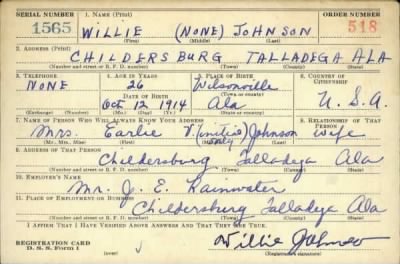 SERIAL NUMBER 1. NAME (Print) ORDER NUMBER
1565 WILLIE (NONE) JOHNSON 518
(First) (Middle) (Last)
2. ADDRESS (Print)
CHILDERSBURG TALLADEGA ALA
(Number and street or R. F. D. number) (Town) (County) (State)
3. TELEPHONE 4. AGE IN YEARS 5. PLACE OF BIRTH 6. COUNTRY OF CITIZENSHIP
NONE 26 Wilsonville
DATE OF BIRTH (Town or county)
Oct 12 1914 Ala U.S.A.
(Exchange) (Number) (Mo.) (Day) (Yr.) (State or country)
7. NAME OF PERSON WHO WILL ALWAYS KNOW YOUR ADDRESS 8. RELATIONSHIP OF THAT PERSON
Mrs. Earlie V. (initial only) Johnson Wife
(Mr., Mrs., Miss) (First) (Middle) (Last)
9. ADDRESS OF THAT PERSON
Childersburg Talladega Ala
(Number and street or R. F. D. number) (Town) (County) (State)
10. EMPLOYER'S NAME
Mr. J. E. Rainwater
11. PLACE OF EMPLOYMENT OR BUSINESS
Childersburg Talladega Ala
(Number and street or R. F. D. number) (Town) (County) (State)
I AFFIRM THAT I HAVE VERIFIED ABOVE ANSWERS AND THAT THEY ARE TRUE.
REGISTRATION CARD
D. S. S. Form 1 Willie Johnson